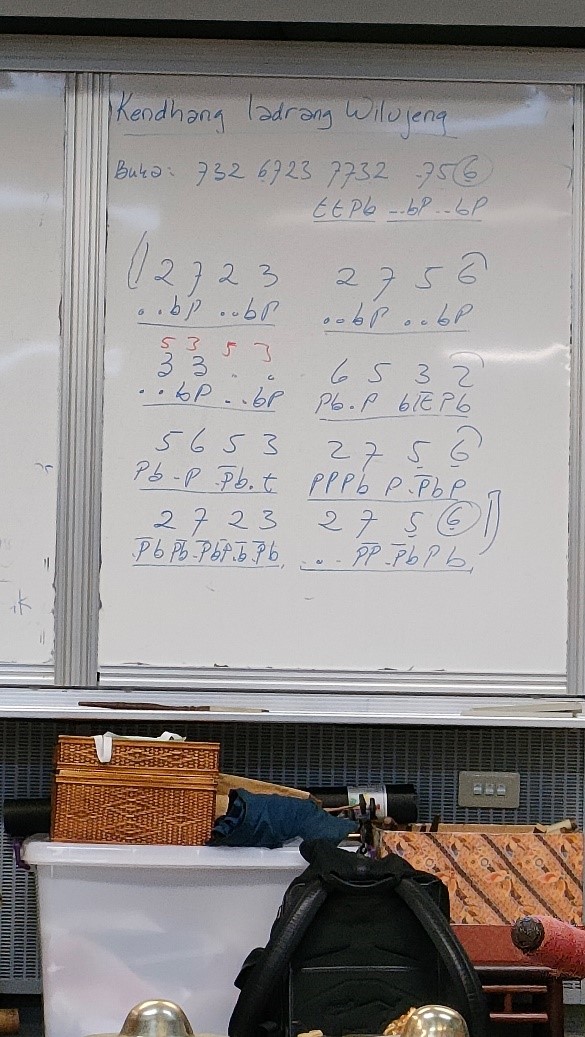 Kendhang ladrang Wilujeng
Buka: 732 6723 7732 .756
ttPb ..bP ..bP
2 7 2 3 2 7 5 6
..bP ..bP ..bP ..bP
5 3 5 3
3 3 . . 6 5 3 2
..bP ..bP Pb.P btPb
5 6 5 3 2 7 5 6
Pb.P Pb.t PPPb P.PbP
2 7 2 3 2 7 5 6
.Pb Pb .PbP.b.Pb ... PP .PbPb
k